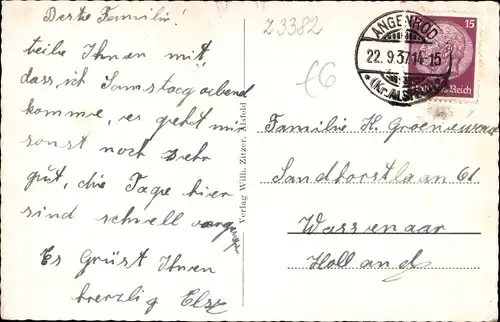 Beste Familie!
teile Ihnen mit,
dass ich Samstag abend
komme, es geht mir
sonst noch sehr
gut, die Tage hier
sind schnell vergangen
Es Grüst Ihnen
herzlig Else
Z 3382
€6
Verlag Wilh. Zitzer, Alsfeld
ANGENROD
22.9.37.14-15
(Kr. ALSFELD)
15
Reich
Familie H. Groeneveld
Sandhorstlaan 61
Wassenaar
Holland